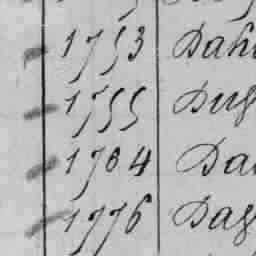 1753 Dah
1755 Dug
1764 Da
1776 Dag